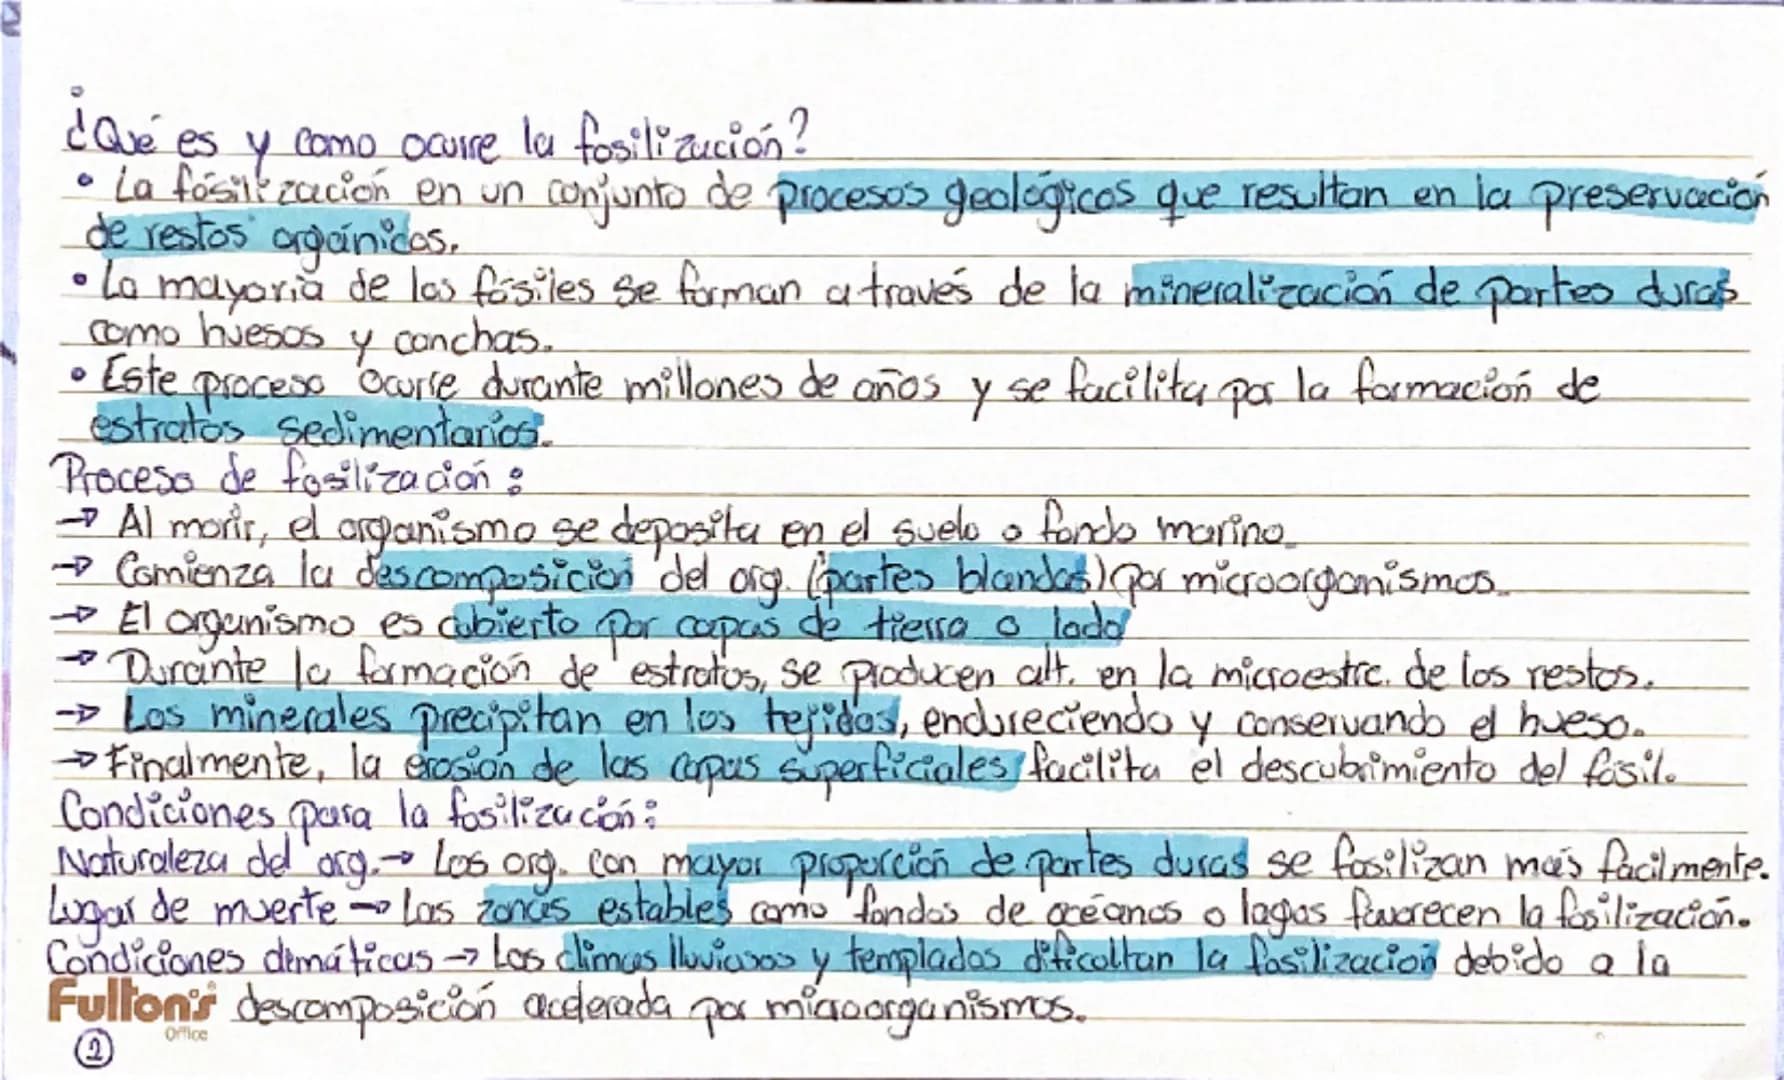 ¿Qué es y como ocurre la fosilización?
• La fosilización en un conjunto de procesos geológicos que resultan en la preservación
de restos orgánicos.
• La mayoría de los fósiles se forman a través de la mineralización de partes duras
como huesos y conchas.
• Este proceso ocurre durante millones de años y se facilita por la formación de
estratos sedimentarios.
Proceso de fosilización:
→ Al morir, el organismo se deposita en el suelo o fondo marino.
→ Comienza la descomposición del org. (partes blandas) por microorganismos.
→ El organismo es cubierto por capas de tierra o lodo
→ Durante la formación de estratos, se producen alt. en la microestrc. de los restos.
→ Los minerales precipitan en los tejidos, endureciendo y conservando el hueso.
→ Finalmente, la erosión de las capas superficiales facilita el descubrimiento del fósil.
Condiciones para la fosilización:
Naturaleza del org. → Los org. con mayor proporción de partes duras se fosilizan más fácilmente.
Lugar de muerte → Las zonas estables como fondos de océanos o lagos favorecen la fosilización.
Condiciones climáticas → Los climas lluviosos y templados dificultan la fosilización debido a la
Fulton's descomposición acelerada por microorganismos.
Office
2